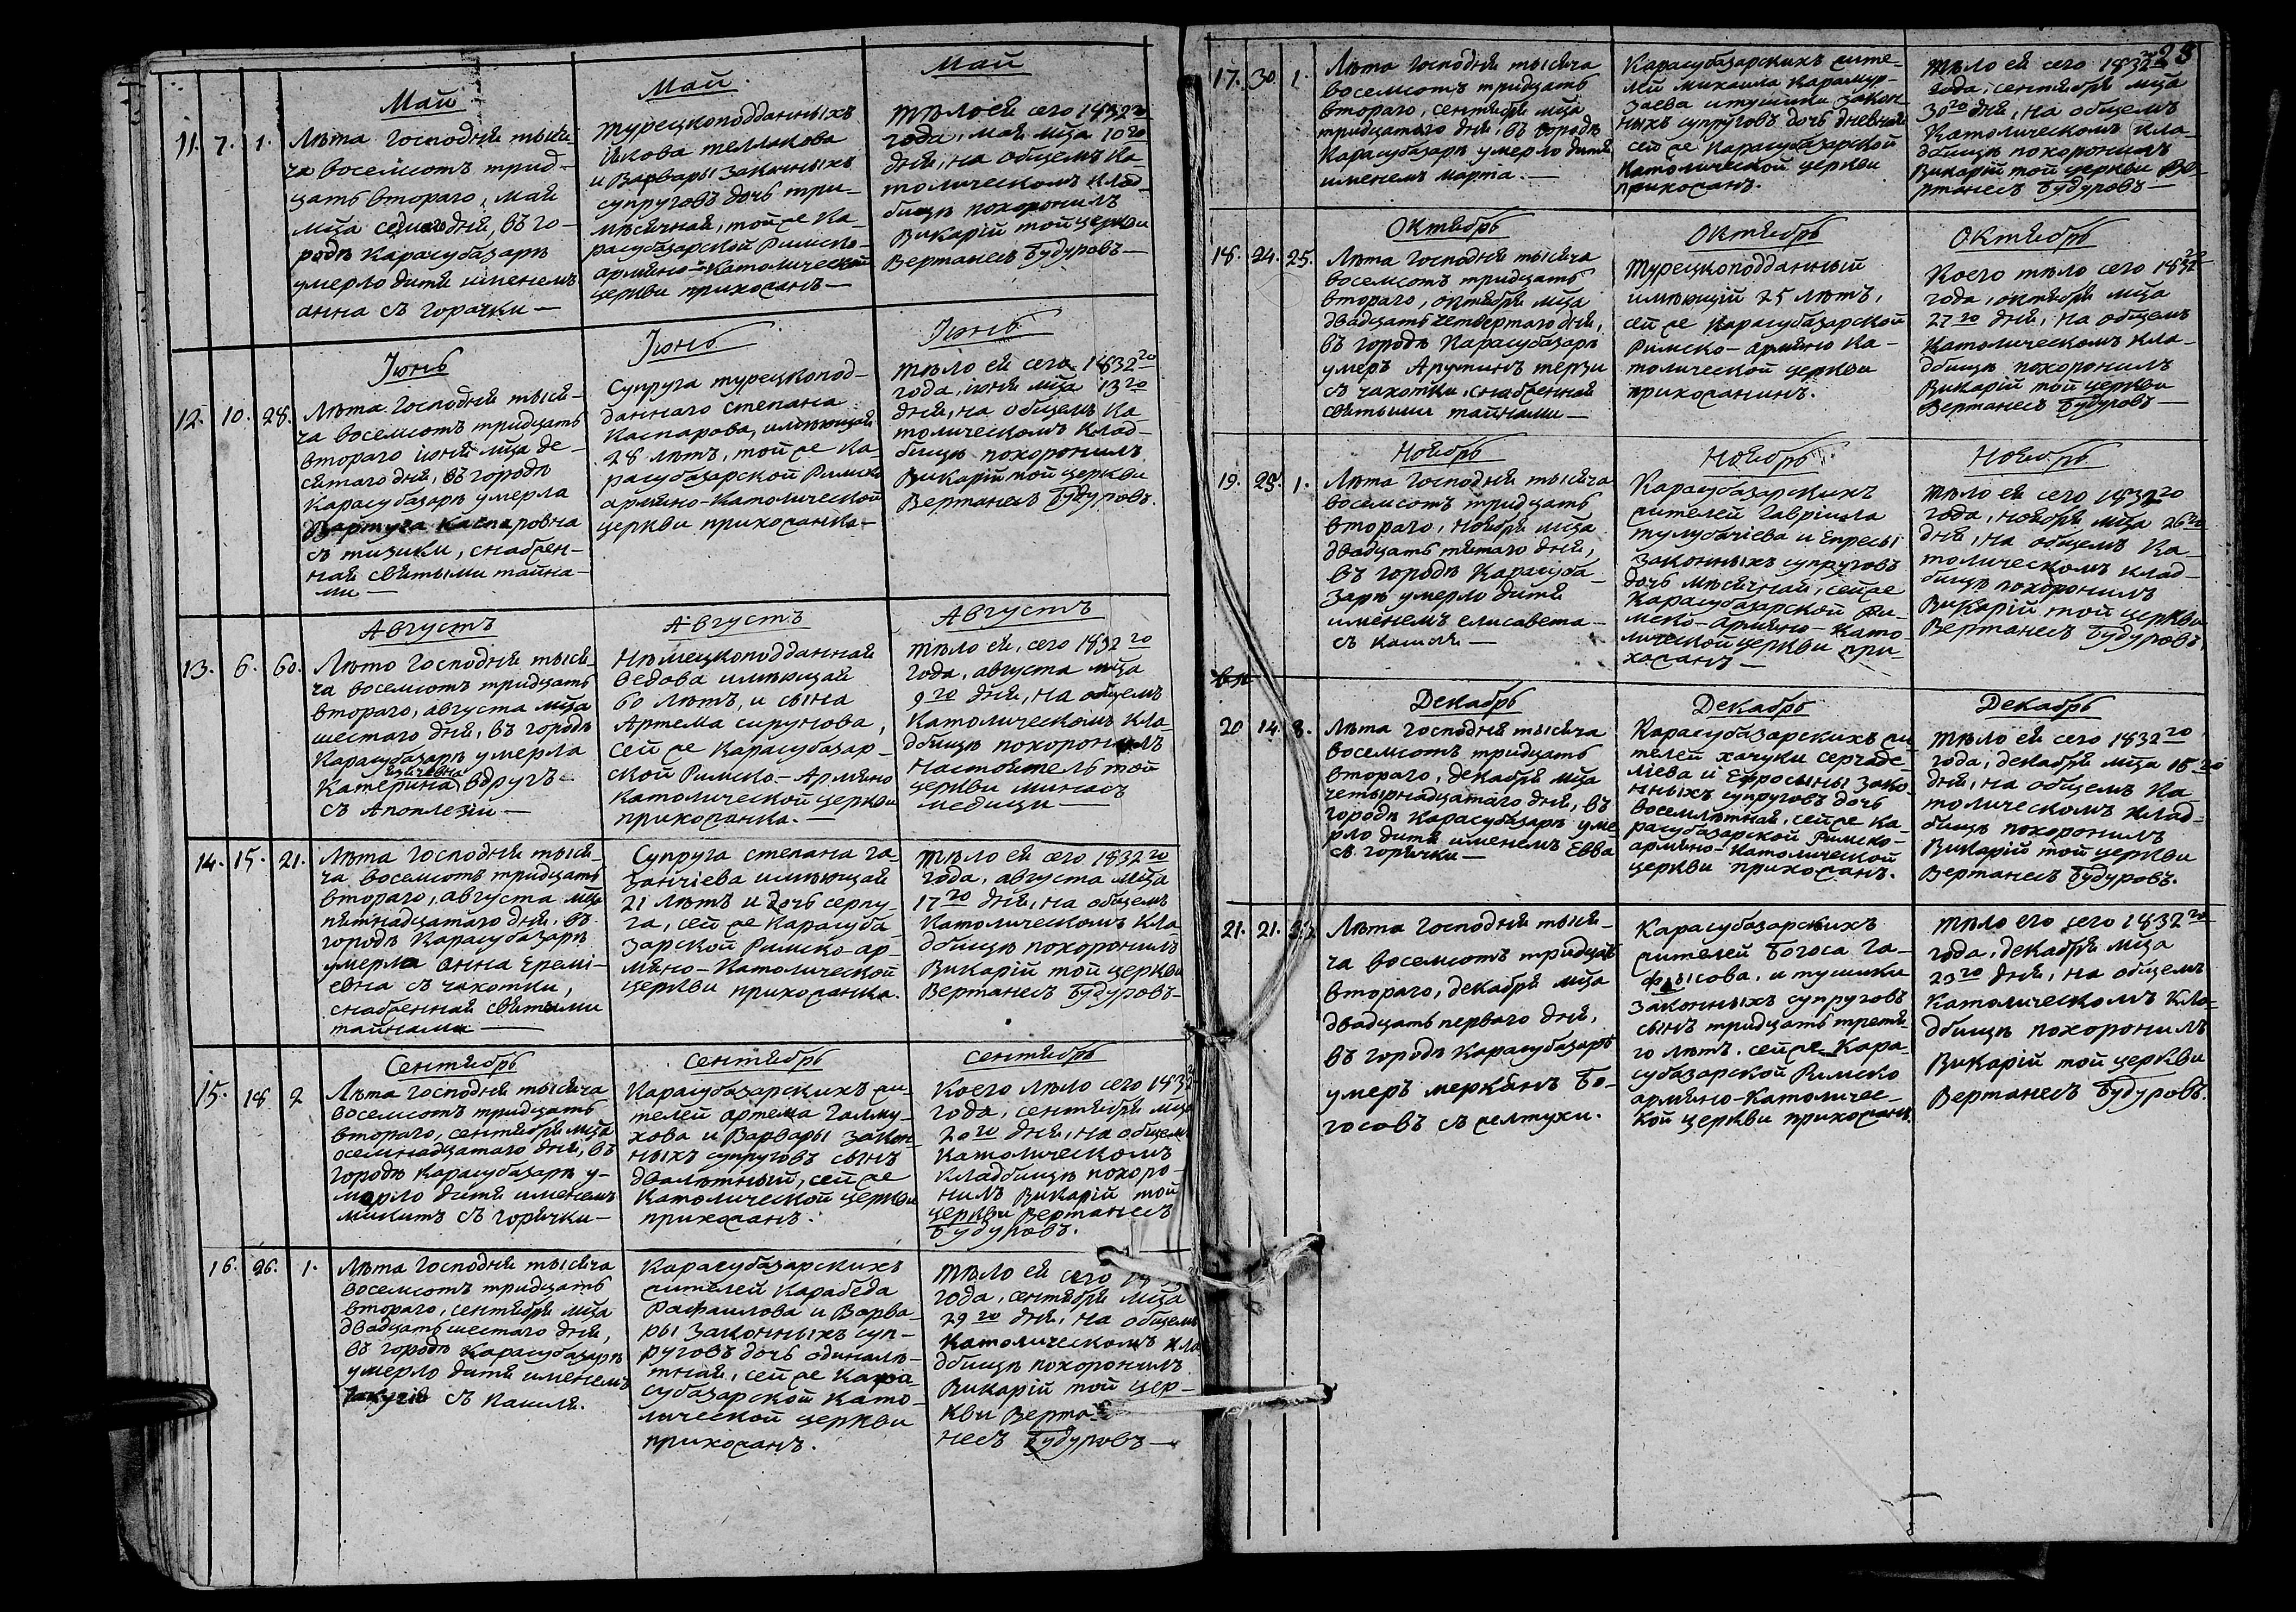 Май
11. 7. 1. Лѣта Господня тыся-
ча восемсотъ трид-
цать втораго, мая
мца седмаго дня, въ го-
родѣ Карасубазарѣ
умерло дитя именемъ
анна съ горячки —
Май
турецкоподданныхъ
и Варвары законныхъ
супруговъ дочь три-
мѣсячная, той же Ка-
расубазарской Римско-
армяно-Католической
церкви прихожанъ —
Май
тѣло ей сего 1832 го
года, мая мца 10 го
дня, на общемъ Ка-
толическомъ клад-
бищѣ похоронилъ
Викарій той церкви
Вертанесъ Будуровъ —
Іюнь
12. 10. 28. Лѣта Господня тыся-
ча восемсотъ тридцать
втораго іюня мца де-
сятаго дня, въ городѣ
Карасубазарѣ умерла
Каспаровна
съ тизики, снабжен-
ная святыми тайна-
ми —
Іюнь
Супруга турецкопод-
даннаго степана
Каспарова, имѣющая
28 лѣтъ, той же Ка-
расубазарской Римско
армяно-Католической
церкви прихожанка —
Іюнь
тѣло ей сего 1832 го
года, іюня мца 13 го
дня, на общемъ Ка-
толическомъ клад-
бищѣ похоронилъ
Викарій той церкви
Вертанесъ Будуровъ.
Августъ
13. 6. 60. Лѣто Господня тыся-
ча восемсотъ тридцать
втораго, августа мца
шестаго дня, въ городѣ
Карасубазарѣ умерла
Катерина вдругъ
съ Апоплезіи —
Августъ
Нѣмецкоподданная
вдова имѣющая
60 лѣтъ, и сына
Артема сирунова,
сей же Карасубазар-
ской Римско-Армяно
Католической церкви
прихожанка. —
Августъ
тѣло ей, сего 1832 го
года, августа мца
9 го дня, на общемъ
Католическомъ кла-
дбищѣ похоронилъ
настоятель той
церкви минасъ
медици —
14. 15. 21. Лѣта Господня тыся-
ча восемсотъ тридцать
втораго, августа мца
пятнадцатаго дня, въ
городѣ Карасубазарѣ
умерла анна Еремі-
евна съ чахотки,
снабженная святыми
тайнами —
Супруга степана га-
занчіева имѣющая
21 лѣтъ и дочь серпу-
га, сей же Карасуба-
зарской Римско-ар-
мяно-Католической
церкви прихожанка.
тѣло ей сего 1832 го
года, августа мца
17 го дня, на общемъ
Католическомъ кла-
дбищѣ похоронилъ
Викарій той церкви
Вертанесъ Будуровъ —
Сентябрь
15. 18 2 Лѣта Господня тысяча
восемсотъ тридцать
втораго, сентября мца
осемнадцатаго дня, въ
городѣ Карасубазарѣ у-
мерло дитя именемъ
микитъ съ горячки —
Сентябрь
Карасубазарскихъ жи-
телей артема
и Варвары закон-
ныхъ супруговъ сынъ
двалѣтный, сей же
Католической церкви
прихожанъ.
Сентябрь
Коего тѣло сего 1832
года, сентября мца
20 го дня, на общемъ
Католическомъ
кладбищѣ похоро-
нилъ Викарій той
церкви Вертанесъ
Будуровъ.
16. 26. 1. Лѣта Господня тысяча
восемсотъ тридцать
втораго, сентября мца
двадцать шестаго дня,
въ городѣ Карасубазарѣ
умерло дитя именемъ
съ кашля.
Карасубазарскихъ
жителей Карабеда
Рафаилова и Варва-
ры законныхъ суп-
руговъ дочь одиналѣ-
тная, сей же Кара-
субазарской Като-
лической церкви
прихожанъ.
тѣло ей сего
года, сентября мца
29 го дня, на общемъ
Католическомъ кла
дбищѣ похоронилъ
Викарій той цер-
кви Верта-
несъ Будуровъ —
28
17. 30. 1. Лѣта Господня тысяча
восемсотъ тридцать
втораго, сентября мца
тридцатаго дня, въ городѣ
Карасубазарѣ умерло дитя
именемъ марта. —
Карасубазарскихъ жите-
лей михаила Карамур-
заева и тушики закон-
ныхъ супруговъ дочь дневная
сей же Карасубазарской
Католической церкви
прихожанъ.
тѣло ей сего 1832 го
года, сентября мца
30 го дня, на общемъ
Католическомъ кла-
дбищѣ похоронилъ
Викарій той церкви Ве-
ртанесъ Будуровъ —
Октябрь
18. 24. 25. Лѣта Господня тысяча
восемсотъ тридцать
втораго, октября мца
двадцать четвертаго дня,
въ городѣ Карасубазарѣ
умеръ Арутинъ терзи
съ чахотки, снабженная
святыми тайнами —
Октябрь
Турецкоподданный
имѣющій 25 лѣтъ,
сей же Карасубазарской
Римско-армяно Ка-
толической церкви
прихожанинъ.
Октябрь
Коего тѣло сего 1832 го
года, октября мца
27 го дня, на общемъ
Католическомъ кла-
дбищѣ похоронилъ
Викарій той церкви
Вертанесъ Будуровъ —
Ноябрь
19. 25. 1. Лѣта Господня тысяча
восемсотъ тридцать
втораго, ноября мца
двадцать пятаго дня,
въ городѣ Карасуба-
зарѣ умерло дитя
именемъ елисавета
съ кашля —
Ноябрь
Карасубазарскихъ
жителей Гавріила
тулубачіева и Епресы
законныхъ супруговъ
дочь мѣсячная, сей же
Карасубазарской Ри-
мско-армяно-Като-
лической церкви при-
хожанъ —
Ноябрь
тѣло ей сего 1832 го
года, ноября мца 26 го
дня, на общемъ Ка-
толическомъ клад-
бищѣ похоронилъ
Викарій той церкви
Вертанесъ Будуровъ.
Декабрь
20 14 8. Лѣта Господня тысяча
восемсотъ тридцать
втораго, декабря мца
четырнадцатаго дня, въ
городѣ Карасубазарѣ уме-
рло дитя именемъ Евва
съ горячки —
Декабрь
Карасубазарскихъ жи
телей хачуки серчаде
лиева и Ефросыны зако-
нныхъ супруговъ дочь
восемилѣтная, сей же Ка-
расубазарской Римско-
армяно-Католической
церкви прихожанъ.
Декабрь
тѣло ей сего 1832 го
года, декабря мца 16 го
дня, на общемъ Ка-
толическомъ клад-
бищѣ похоронилъ
Викарій той церкви
Вертанесъ Будуровъ.
21. 21. Лѣта Господня тыся-
ча восемсотъ тридцать
втораго, декабря мца
двадцать перваго дня,
въ городѣ Карасубазарѣ
умеръ меркянъ Бо-
госовъ съ желтухи.
Карасубазарскихъ
жителей Богоса га-
фысова, и тушики
законныхъ супруговъ
сынъ тридцать третя-
го лѣтъ. сей же Кара-
субазарской Римско
армяно-Католичес-
кой церкви прихожанъ.
тѣло его сего 1832 го
года, декабря мца
23 го дня, на общемъ
Католическомъ кла-
дбищѣ похоронилъ
Викарій той церкви
Вертанесъ Будуровъ.